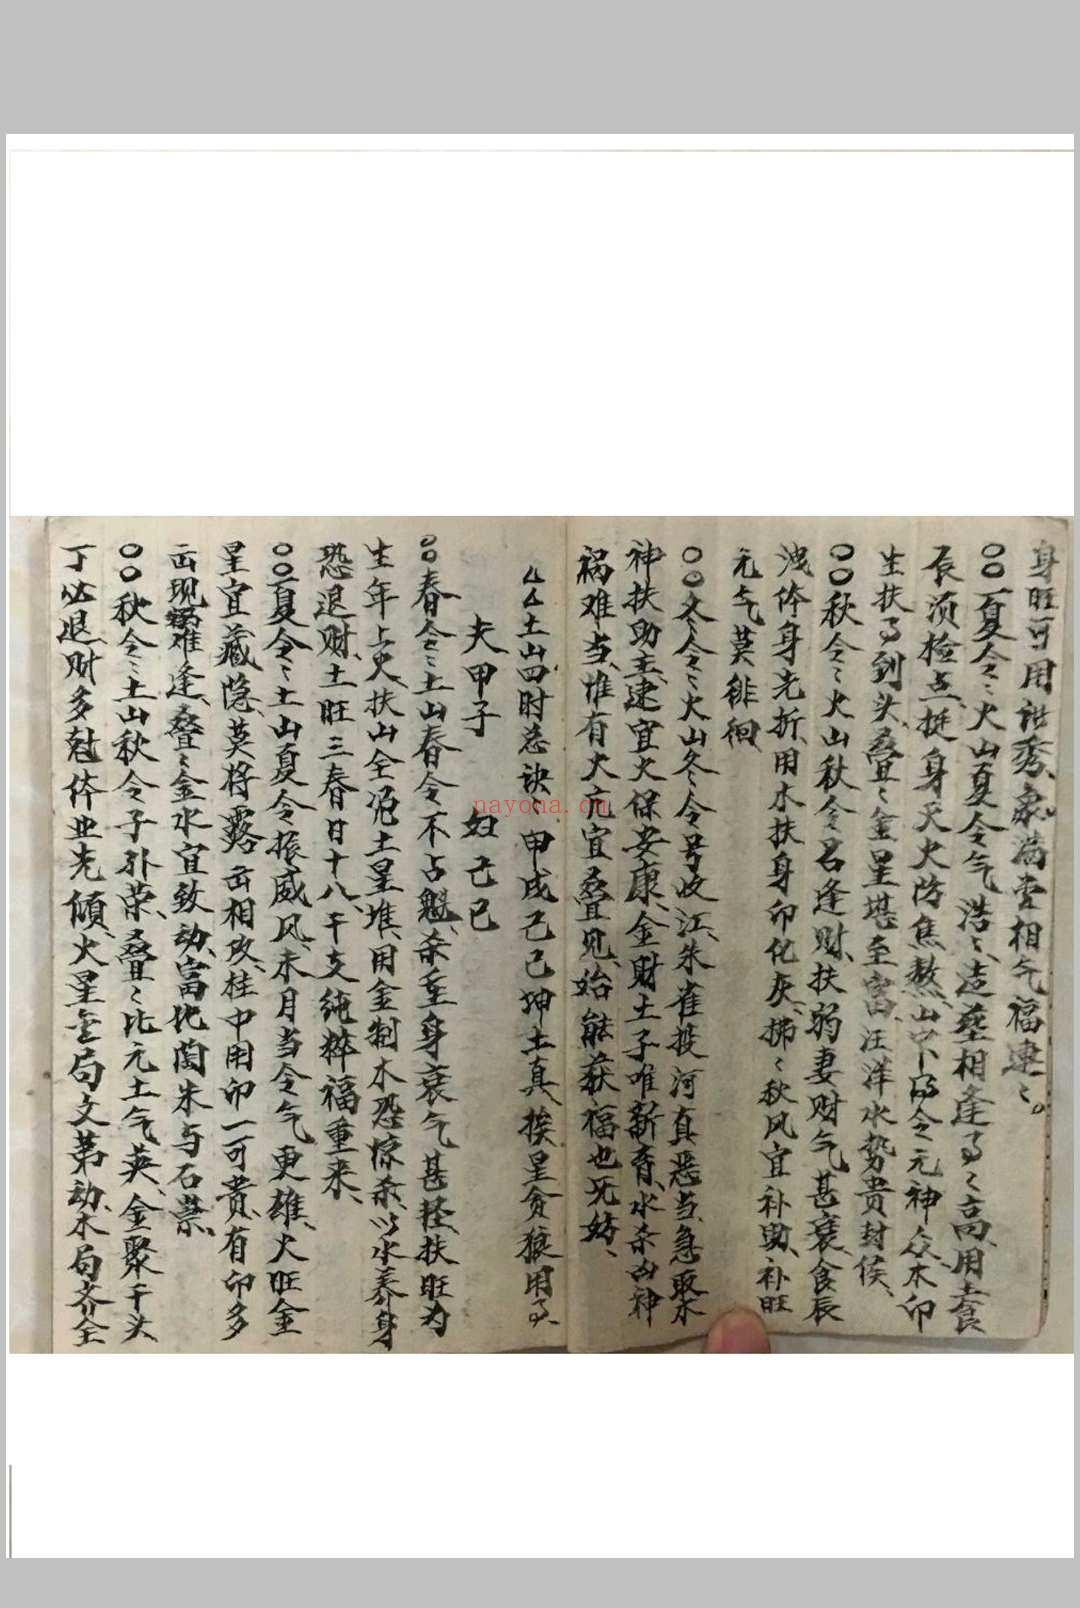 身旺可用詃秀象满堂相气福連〻。
〇〇夏令〻火山夏令气浩〻造葬相逢〻高、用食
辰须检点、挺身灭火防焦熬、山中令元神众、木印
生扶到头、叠〻金星堪至富、汪洋水势贵封侯、
〇〇秋令〻火山秋令名逢财、扶弱妻财气甚衰、食辰
洩体身先折、用木扶身印化灰、拂〻秋风宜补助、补旺
元气莫徘徊、
〇〇冬令〻火山冬令号收江、朱雀投河真恶当、急取木
神扶助主、建宜火保安康、金财土子唯新育、水杀凶神
祸难当、堆有火亢宜叠见、始能获福也无妨、
△△土山四时总诀〻甲戌己巳坤土真、挨星贪狼用
夫甲子 妇己巳
〇〇春令〻土山春令不占魁、杀重身衰气甚轻、扶旺为
生年上火、扶山全范土星堆、用金制木恐惊杀、以水养身
恐退财、土旺三春日十八、干支纯粹福重来、
〇〇夏令〻土山夏令振威风、未月当令气更雄、火旺金
星宜藏隐、莫将露面相攻、柱中用印一可贵、有印多
面现难逢、叠〻金水宜致动、富比陶朱与石崇、
〇〇秋令〻土山秋令子外荣、叠〻比元土气英、金聚干头
丁必退、财多尅体业先倾、火星全局文第动、木局齐全
nayona.cn